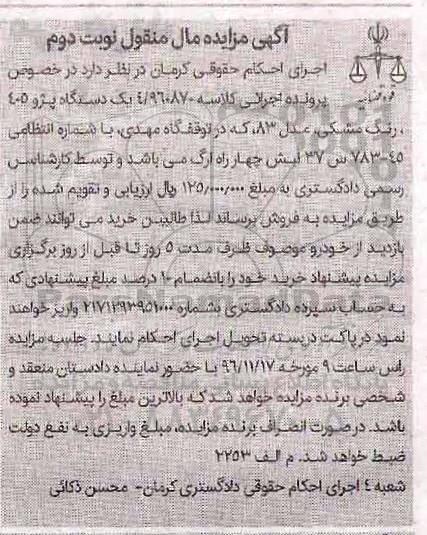 آگهی مزایده مال منقول نوبت دوم
اجرای احکام حقوقی کرمان در نظر دارد در خصوص
پرونده اجرائی کلاسه ۴/۹۶۰۸۷۰ یک دستگاه پژو ۴۰۵
، رنگ مشکی، مدل ۸۳، که در توقفگاه مهدی، با شماره انتظامی
۴۵-۷۸۳ س ۳۷ نبش چهار راه ارگ می باشد و توسط کارشناس
رسمی دادگستری به مبلغ ۱۲۵/۰۰۰/۰۰۰ ریال ارزیابی و تقویم شده را از
طریق مزایده به فروش برساند لذا طالبین خرید می توانند ضمن
بازدید از خودرو موصوف ظرف مدت ۵ روز تا قبل از روز برگزاری
مزایده پیشنهاد خرید خود را بانضمام ۱۰ درصد مبلغ پیشنهادی که
به حساب سپرده دادگستری بشماره ۲۱۷۱۲۹۳۹۵۱۰۰۰ واریز خواهند
نمود در پاکت دربسته تحویل اجرای احکام نمایند. جلسه مزایده
راس ساعت ۹ مورخه ۹۶/۱۱/۱۷ با حضور نماینده دادستان منعقد و
شخصی برنده مزایده خواهد شد که بالاترین مبلغ را پیشنهاد نموده
باشد. در صورت انصراف برنده مزایده، مبلغ واریزی به نفع دولت
ضبط خواهد شد. م الف ۲۲۵۳
شعبه ۴ اجرای احکام حقوقی دادگستری کرمان- محسن ذکائی